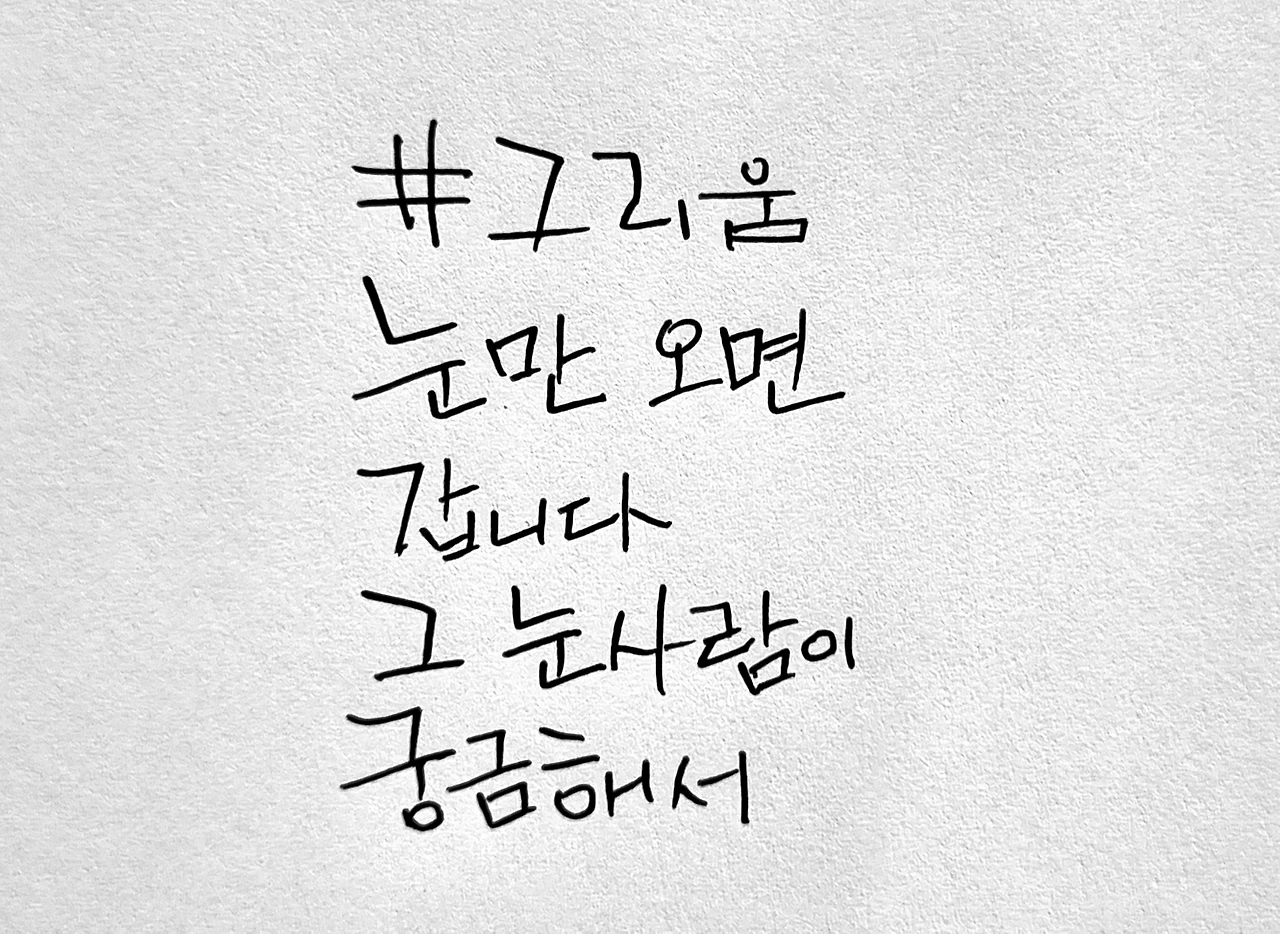 #그리움
눈만 오면
갑니다
그 눈사람이
궁금해서